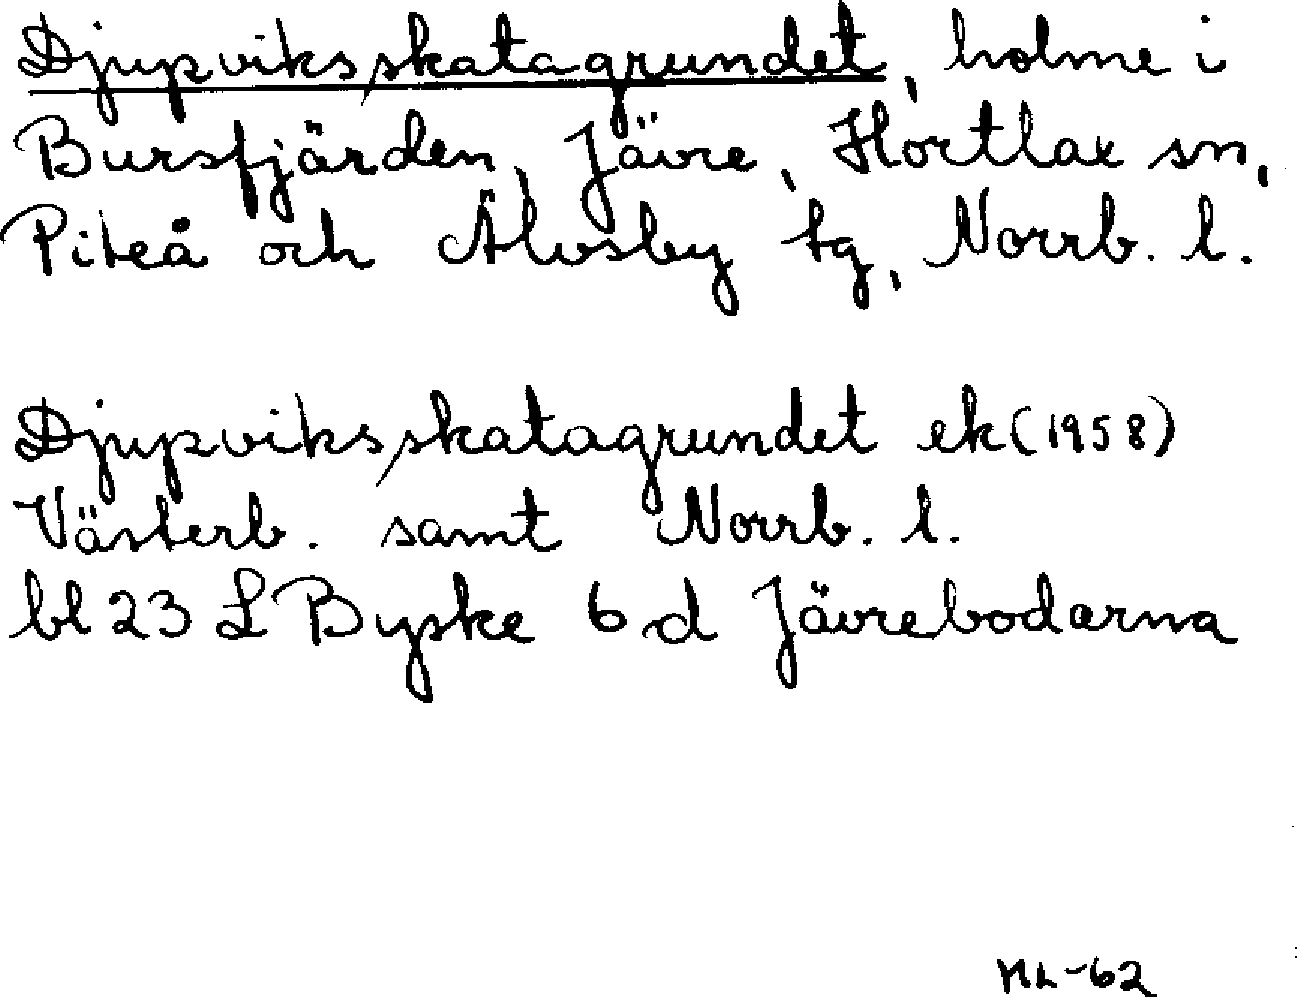 Djupviks/skatagrundet, holme i
Bursfjärden, Jävre, Hortlax sn,
Piteå och Älvsby tg, Norrb. l.
Djupviks/skatagrundet ek (1958)
Västerb. samt Norrb. l.
bl 23 L Byske 6 d Jävrebodarna
ML-62